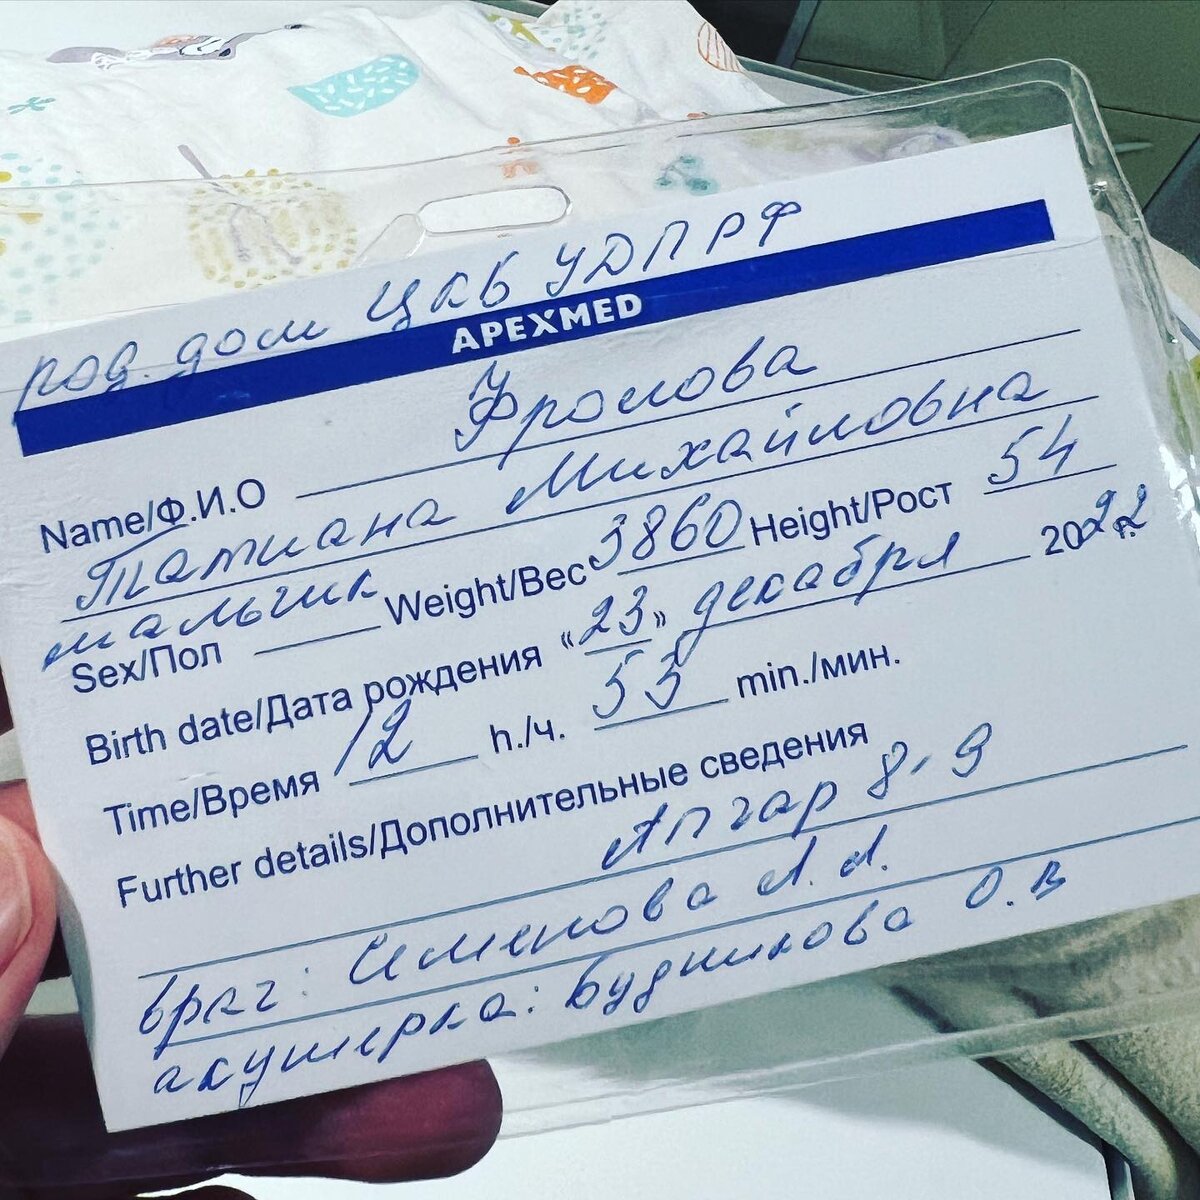 род. дом ЦКБ УДП РФ
APEXMED
Name/Ф.И.О Фролова
Татиана Михайловна
Sex/Пол мальчик Weight/Вес 3860 Height/Рост 54
Birth date/Дата рождения «23» декабря 2022 г.
Time/Время 12 h./ч. 53 min./мин.
Further details/Дополнительные сведения
Апгар 8-9
врач: Семенова А.А.
акушерка: Будникова О.В